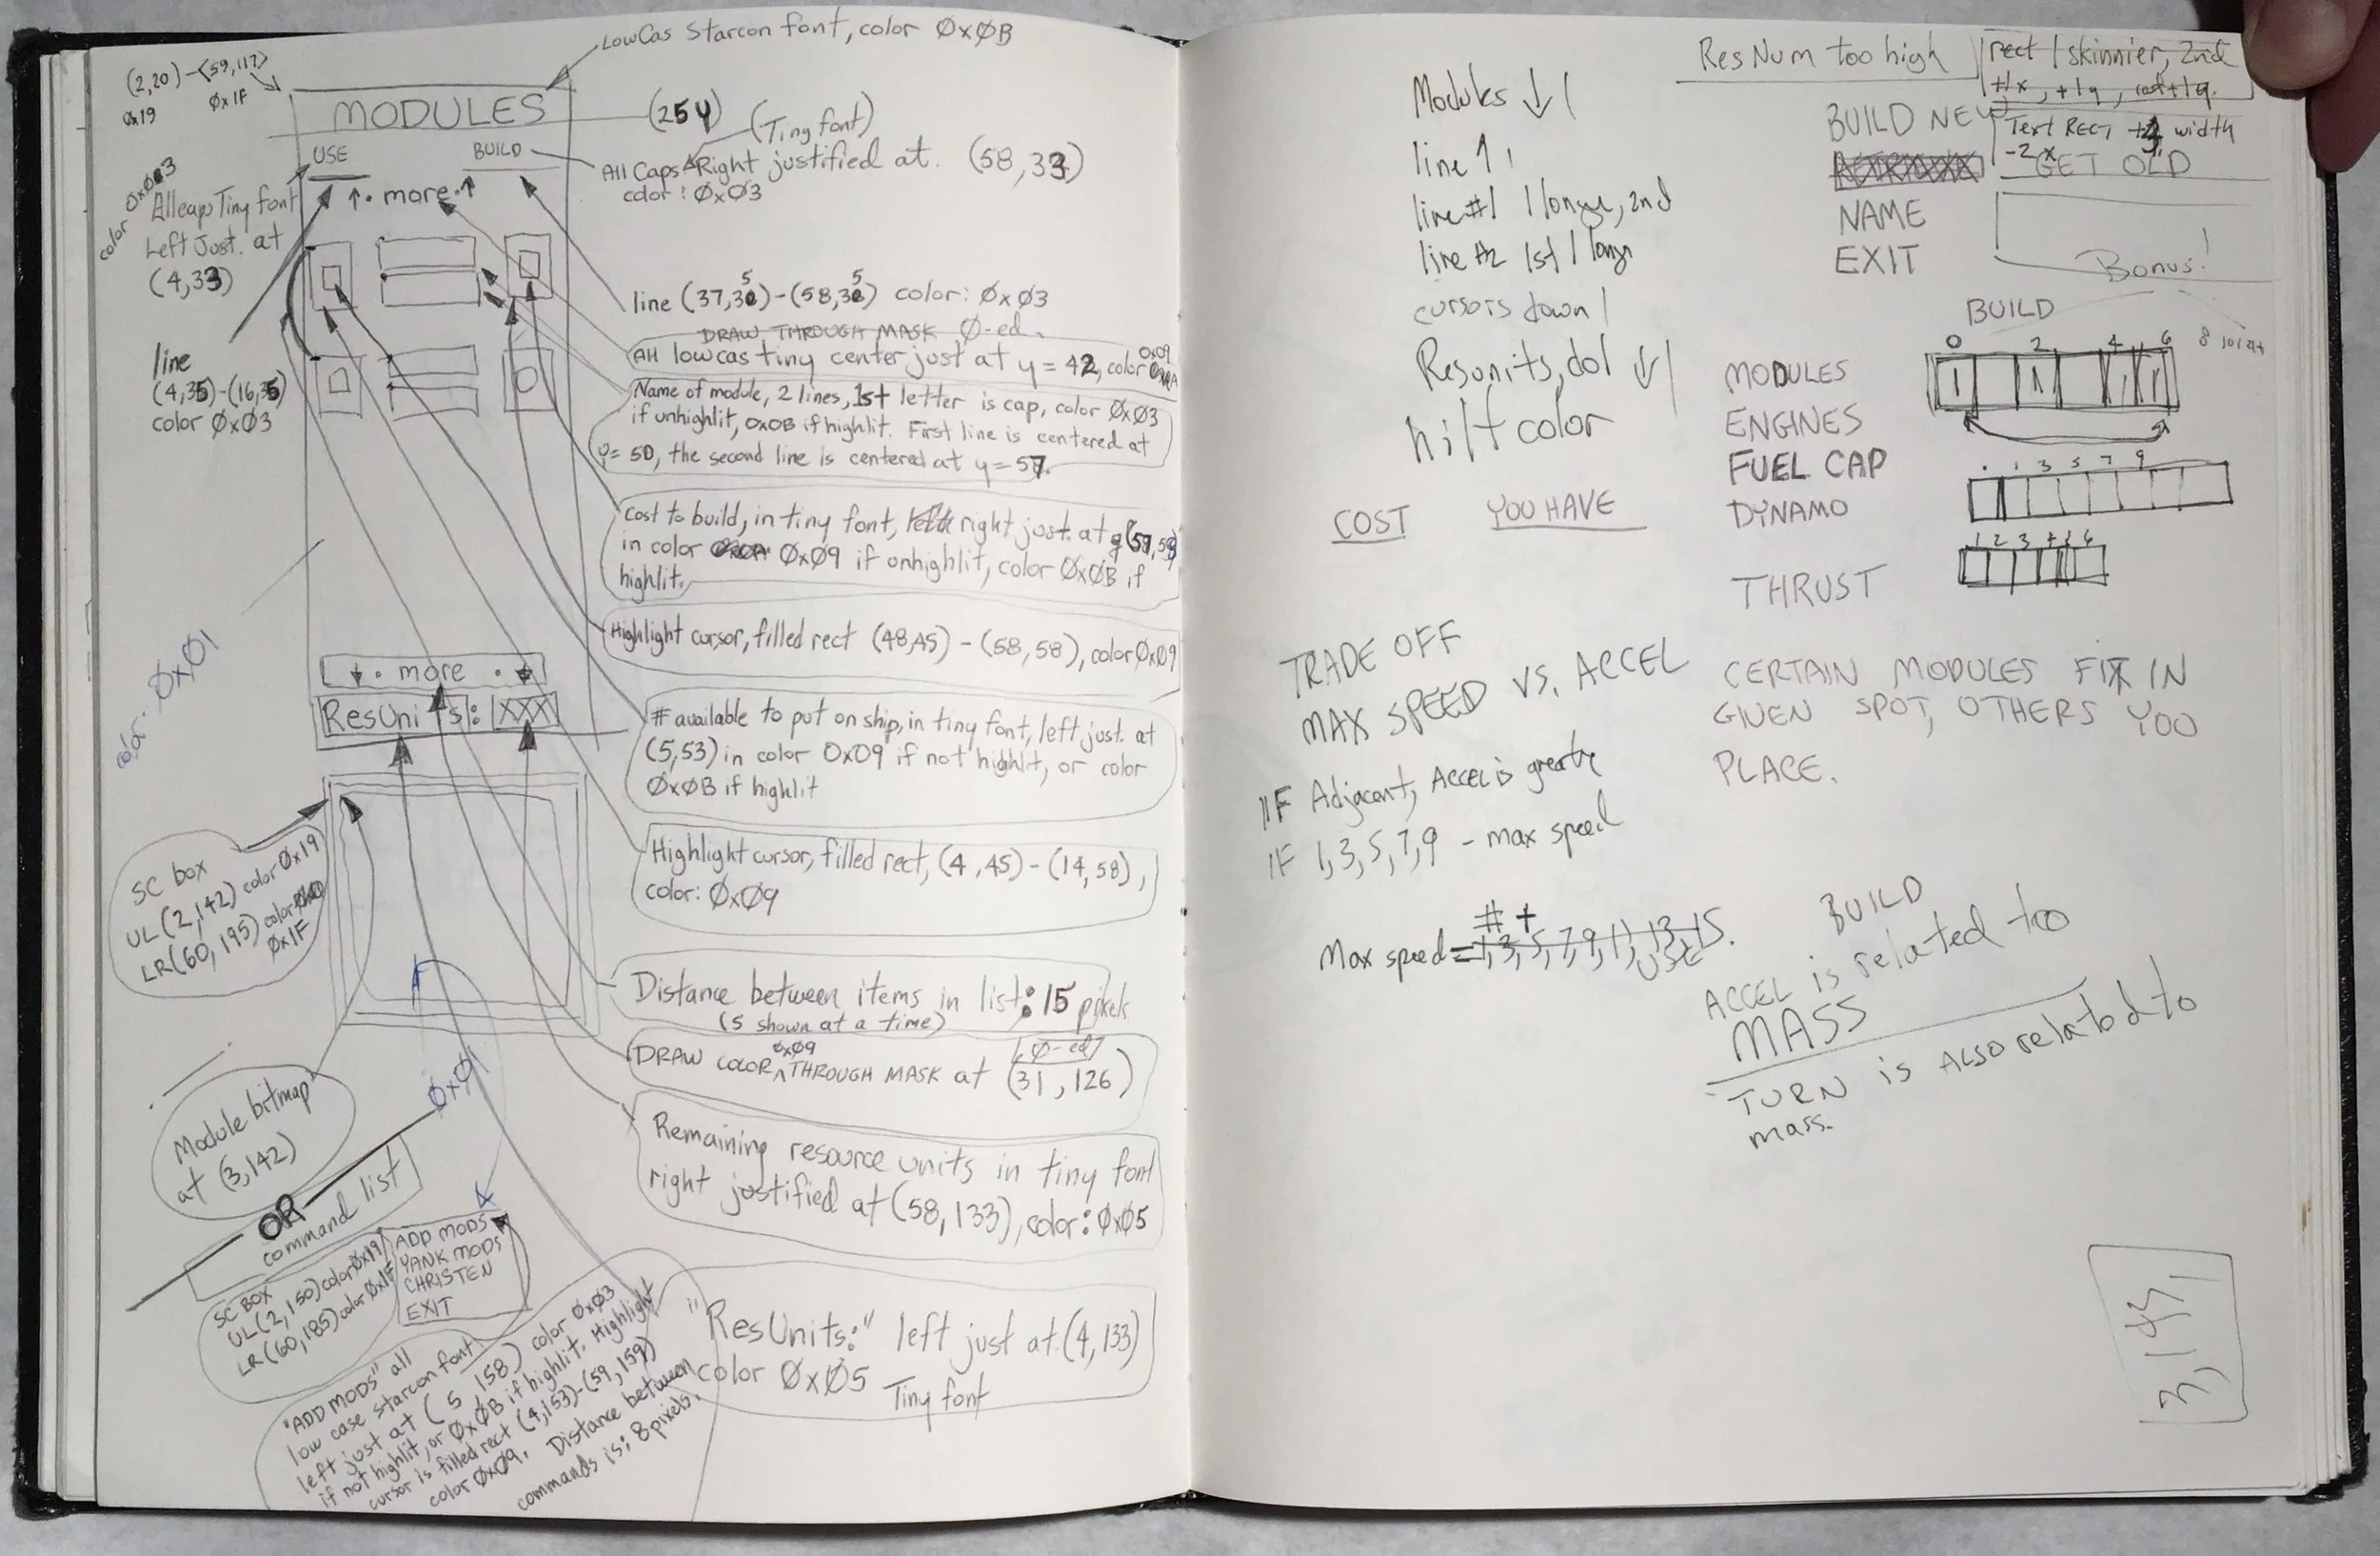 LowCas Starcon font, color 0x0B
(2,20)-(59,117)
0x19 0x1F
MODULES
(25Y)
(Tiny font)
USE
BUILD
All Caps Right justified at. (58,33)
color: 0x03
↑. more. ↑
color 0x03
All caps Tiny font
Left Just. at
(4,33)
line (37,35)-(58,35) color: 0x03
DRAW THROUGH MASK 0-ed.
line
(4,35)-(16,35)
color 0x03
All lowcas tiny center just at y = 42, color 0x09
Name of module, 2 lines, 1st letter is cap, color 0x03
if unhighlit, 0x0B if highlit. First line is centered at
y= 50, the second line is centered at y=57.
Cost to build, in tiny font, right just. at (57,58)
in color 0x09 if unhighlit, color 0x0B if
highlit.
Highlight cursor, filled rect (48,45) - (58,58), color 0x09
color. 0x01
↓. more . ↓
ResUnits: XXX
# available to put on ship, in tiny font, left just. at
(5,53) in color 0x09 if not highlit, or color
0x0B if highlit
SC box
UL(2,142) color 0x19
LR(60,195) color
0x1F
Highlight cursor, filled rect, (4,45)-(14,58),
color: 0x09
Distance between items in list: 15 pixels
(5 shown at a time)
DRAW COLOR 0x09 THROUGH MASK at (31, 126)
0-ed
0x01
Module bitmap
at (3,142)
Remaining resource units in tiny font
right justified at (58,133), color: 0x05
OR
command list
SC BOX
UL(2,150) color 0x19
LR(60,185) color 0x1F
ADD MODS
YANK MODS
CHRISTEN
EXIT
"ADD MODS" all
low case starcon font
left just at (5 158) color 0x03
if not highlit, or 0x0B if highlit. Highlight
cursor is filled rect (4,153)-(59,159)
color 0x09. Distance between
commands is: 8 pixels.
"ResUnits:" left just at (4,133)
color 0x05 Tiny font
ResNum too high
rect 1 skinnier, 2nd
+1x, +1y, cost +1y.
Text RECT +4 width
-2 x
Modules ↓ 1
line 1 1
line #1 1 longer, 2nd
line #2 1st 1 longr
cursors down 1
Resunits, dol ↓ 1
hilt color
BUILD NEW
GET OLD
NAME
EXIT
Bonus!
BUILD
0 2 4 6
MODULES
ENGINES
FUEL CAP
DYNAMO
THRUST
. 1 3 5 7 9
1 2 3 4 5 6
COST YOU HAVE
TRADE OFF
MAX SPEED VS. ACCEL
IF Adjacent, Accel is greater
IF 1,3,5,7,9 - max speed
CERTAIN MODULES FIX IN
GIVEN SPOT, OTHERS YOU
PLACE.
# +
Max speed = 1,3,5,7,9,11,13,15.
USE
BUILD
ACCEL is related to
MASS
TURN is ALSO related to
mass.
3,143